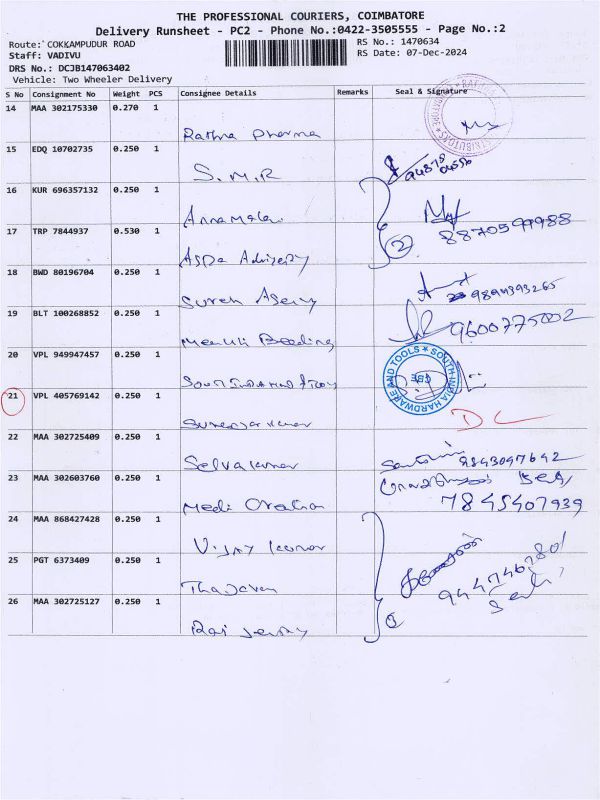 THE PROFESSIONAL COURIERS, COIMBATORE
Delivery Runsheet - PC2 - Phone No.:0422-3505555 - Page No.:2
Route: COKKAMPUDUR ROAD RS No.: 1470634
Staff: VADIVU RS Date: 07-Dec-2024
DRS No.: DCJB147063402
Vehicle: Two Wheeler Delivery
S No Consignment No Weight PCS Consignee Details Remarks Seal & Signature
14 MAA 302175330 0.270 1
Rathna Pharma
15 EDQ 10702735 0.250 1
S.M.R
16 KUR 696357132 0.250 1
Annamalai
8870599988
17 TRP 7844937 0.530 1
2
18 BWD 80196704 0.250 1
Suresh
9894393265
19 BLT 100268852 0.250 1
9600775002
20 VPL 949947457 0.250 1
SOUTH INDIA HARDWARE AND TOOLS
CBE
21 VPL 405769142 0.250 1
DC
22 MAA 302725409 0.250 1
Selvakumar
9843097642
23 MAA 302603760 0.250 1
Medi
7845407939
24 MAA 868427428 0.250 1
Vijay kumar
25 PGT 6373409 0.250 1
26 MAA 302725127 0.250 1
Raj